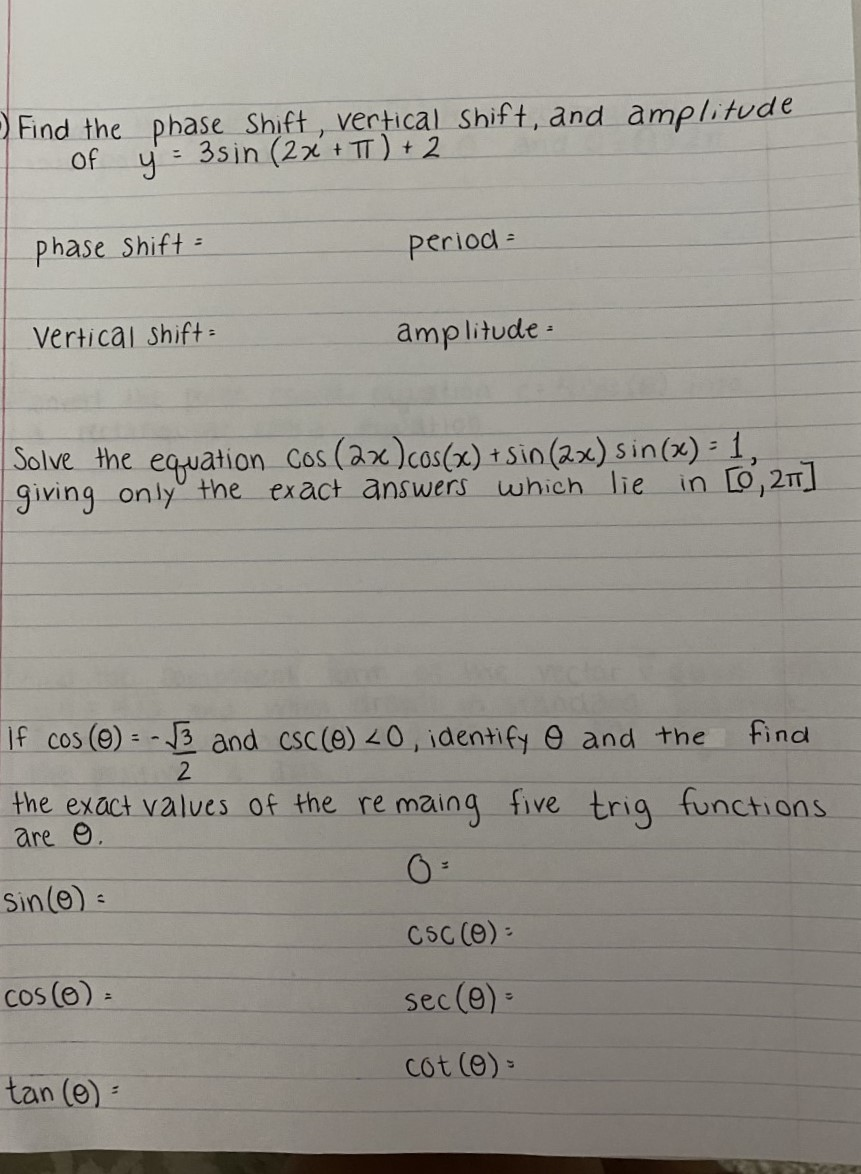 ) Find the phase shift, vertical shift, and amplitude
of y = 3sin (2x + π) + 2
phase shift = period =
Vertical shift = amplitude =
Solve the equation cos(2x)cos(x) + sin(2x) sin(x) = 1,
giving only the exact answers which lie in [0, 2π]
If cos(θ) = -√3/2 and csc(θ) <0, identify θ and the find
the exact values of the remaing five trig functions
are θ.
O =
sin(θ) =
csc(θ) =
cos(θ) = sec(θ) =
cot(θ) =
tan(θ) =